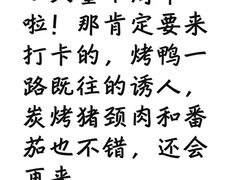 啦！那肯定要来
打卡的，烤鸭一
路既往的诱人，
炭烤猪颈肉和番
茄也不错，还会
再来